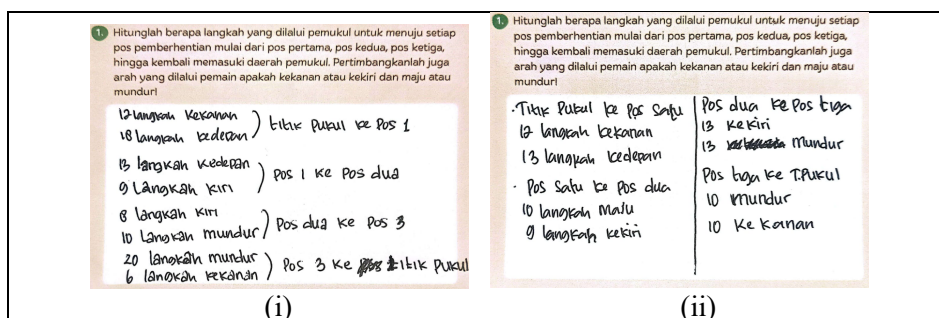 1. Hitunglah berapa langkah yang dilalui pemukul untuk menuju setiap
pos pemberhentian mulai dari pos pertama, pos kedua, pos ketiga,
hingga kembali memasuki daerah pemukul. Pertimbangkanlah juga
arah yang dilalui pemain apakah kekanan atau kekiri dan maju atau
mundur!
12 langkah kekanan
18 langkah kedepan ) titik pukul ke Pos 1
13 langkah kedepan
9 Langkah kiri ) Pos 1 ke Pos dua
8 langkah kiri
10 Langkah mundur ) Pos dua ke Pos 3
20 langkah mundur
6 langkah kekanan ) Pos 3 ke titik pukul
(i)
1. Hitunglah berapa langkah yang dilalui pemukul untuk menuju setiap
pos pemberhentian mulai dari pos pertama, pos kedua, pos ketiga,
hingga kembali memasuki daerah pemukul. Pertimbangkanlah juga
arah yang dilalui pemain apakah kekanan atau kekiri dan maju atau
mundur!
· Titik Pukul ke Pos Satu
12 langkah kekanan
13 langkah kedepan
· Pos Satu ke Pos dua
10 langkah maju
9 langkah kekiri
Pos dua ke Pos tiga
13 Kekiri
13 Mundur
Pos tiga ke T.Pukul
10 mundur
10 Ke kanan
(ii)